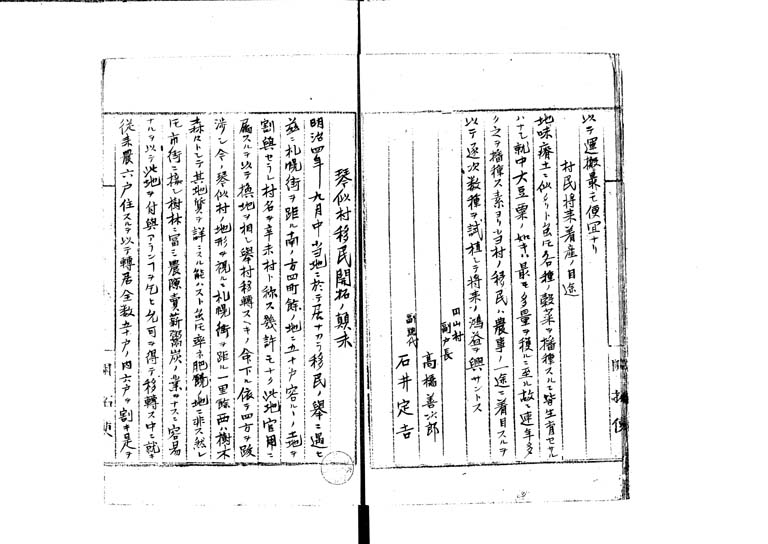 以テ運搬最モ便宜ナリ
村民将来着産ノ目途
地味瘠土ニ似タリト雖𪜈各種ノ穀菜ヲ播種スルニ皆生育セサル
ハナシ就中大豆粟ノ如キハ最モ多量ヲ獲ルニ至ル故ニ連年多
ク之ヲ播種ス素ヨリ当村ノ移民ハ農事ノ一途ニ着目スルヲ
以テ逐次数種ヲ試植シテ将来ノ鴻益ヲ興サントス
円山村
副戸長
高橋善次郎
副総代
石井定吉
開拓使
琴似村移民開拓ノ顛末
明治四年九月中当地ニ於テ居ナカラ移民ノ挙ニ遇ヒ
茲ニ札幌街ヲ距ル南ノ方四町餘ノ地ニ五十戸容ルヽノ土地ヲ
割與セラレ村名ヲ辛未村ト称ス幾許モナク此地官用ニ
属スルヲ以テ換地ヲ相シ挙村移轉スヘキノ命下ル依テ四方ヲ跋
渉シ今ノ琴似村ノ地形ヲ視ルニ札幌街ヲ距ル一里餘西ハ樹木
森々トシテ其地質ヲ詳ニスル能ハスト雖𪜈率子肥饒ノ地ニ非ス然レ
𪜈市街ニ接シ樹林ニ富ミ農隙賣薪鬻炭ノ業ヲナスニ容易
ナルヲ以テ此地ヲ付與アランコヲ乞ヒ允可ヲ得テ移轉ス中ニ就キ
従来農六戸住スルヲ以テ轉居全数五十戸ノ内六戸ヲ割キ是ヲ
開拓使